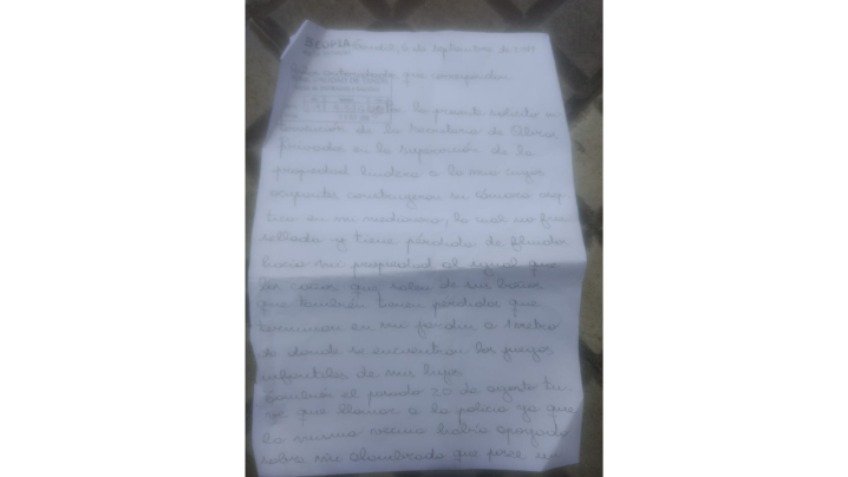 ES COPIA
Tandil, 6 de septiembre de
autoridades que corresponda:
Por la presente solicito in
tervención de la secretaria de Obras
Privadas en la supervisión de la
propiedad lindera a la mia cuyos
ocupantes construyeron su cámara sép
tica en mi medianera, la cual no fue
sellada y tiene pérdida de fluidos
hacia mi propiedad al igual que
los caños que salen de sus baños
que también tienen pérdidas que
terminan en mi jardin a 1 metro
de donde se encuentran los juegos
infantiles de mis hijos.
También el pasado 20 de agosto tu
ve que llamar a la policia ya que
la misma vecina habia apoyado
sobre mi alambrado que posee un